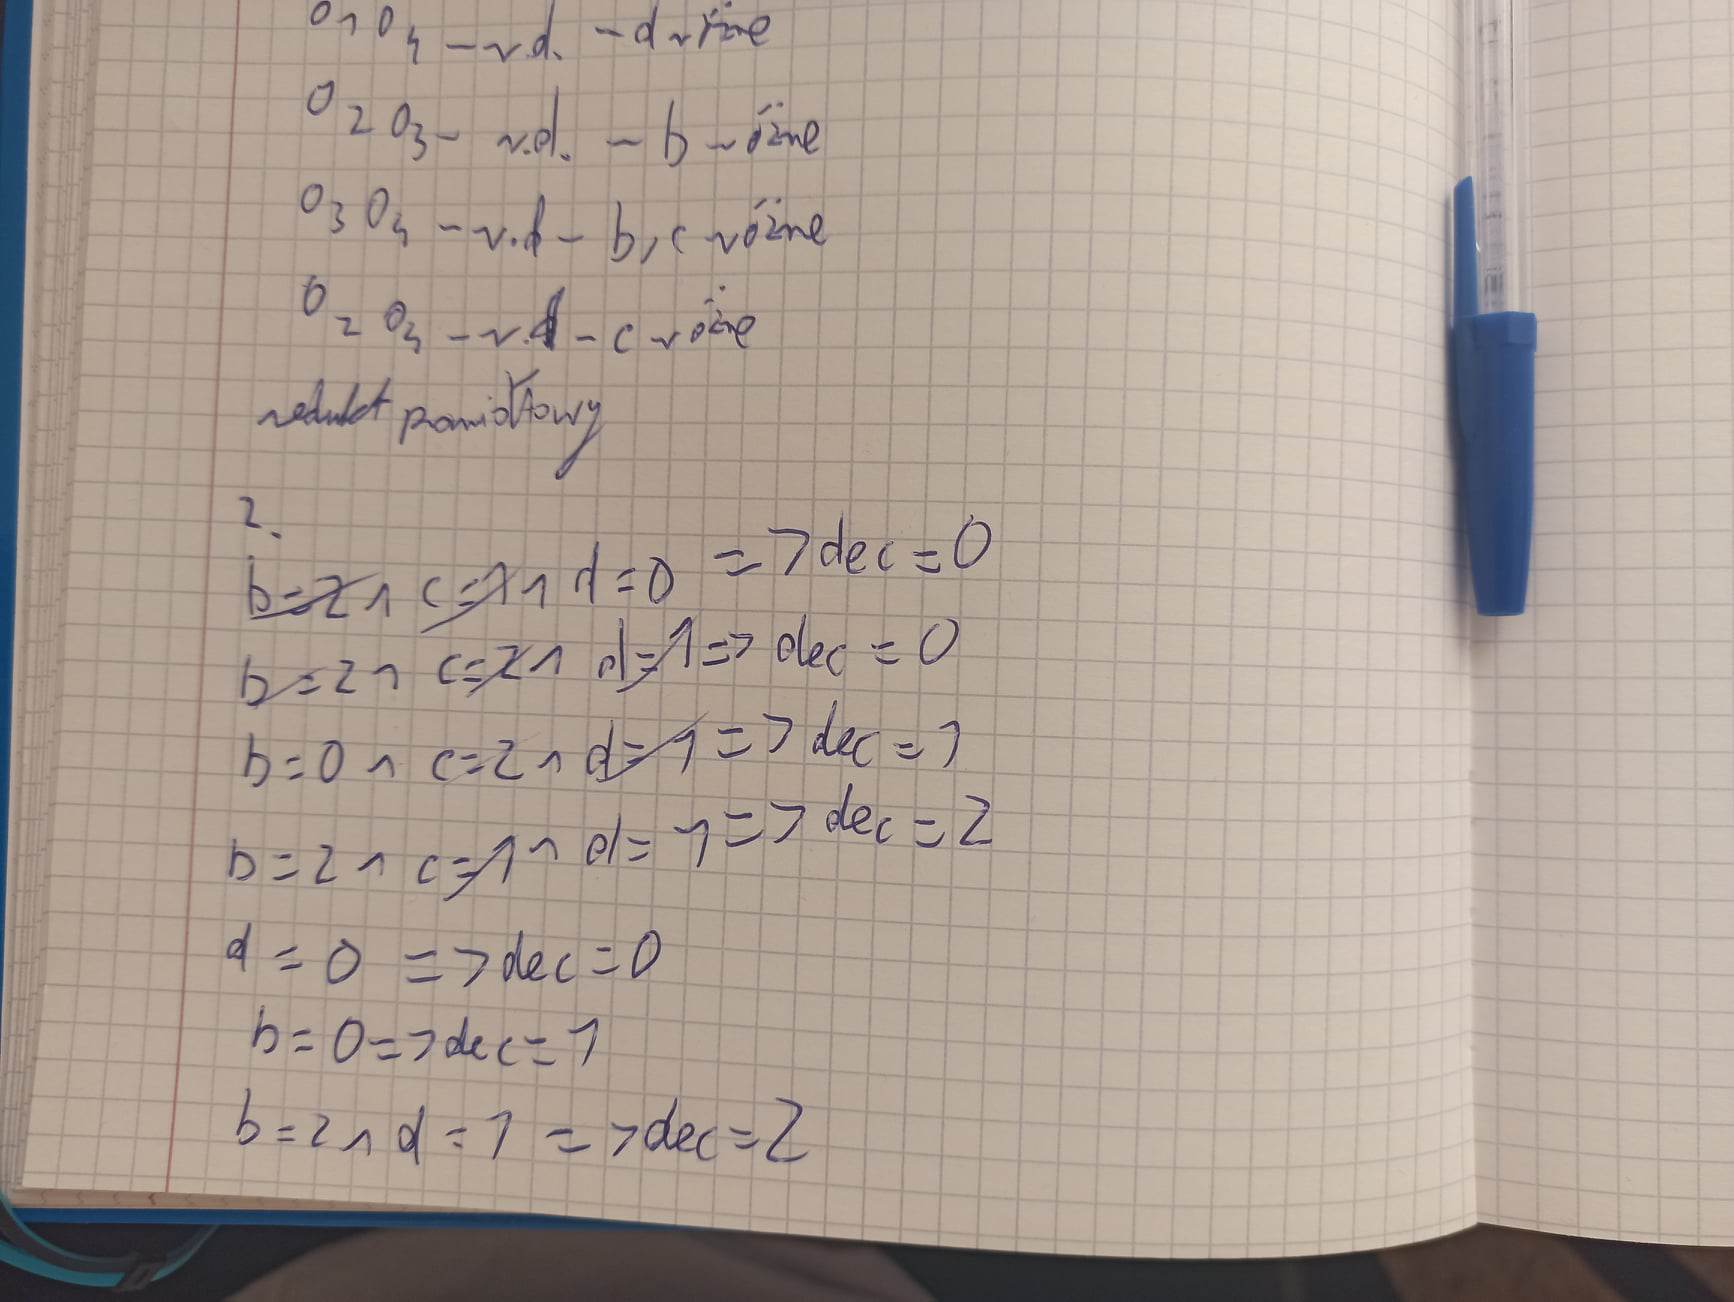 O1 O4 - r.d. - d różne
O2 O3 - r.d. - b różne
O3 O4 - r.d - b, c różne
O2 O4 - r.d - c różne
redukt
2.
b=2 ∧ c=1 ∧ d=0 => dec=0
b=2 ∧ c=2 ∧ d=1 => dec=0
b=0 ∧ c=2 ∧ d=1 => dec=1
b=2 ∧ c=1 ∧ d=1 => dec=2
d=0 => dec=0
b=0 => dec=1
b=2 ∧ d=1 => dec=2